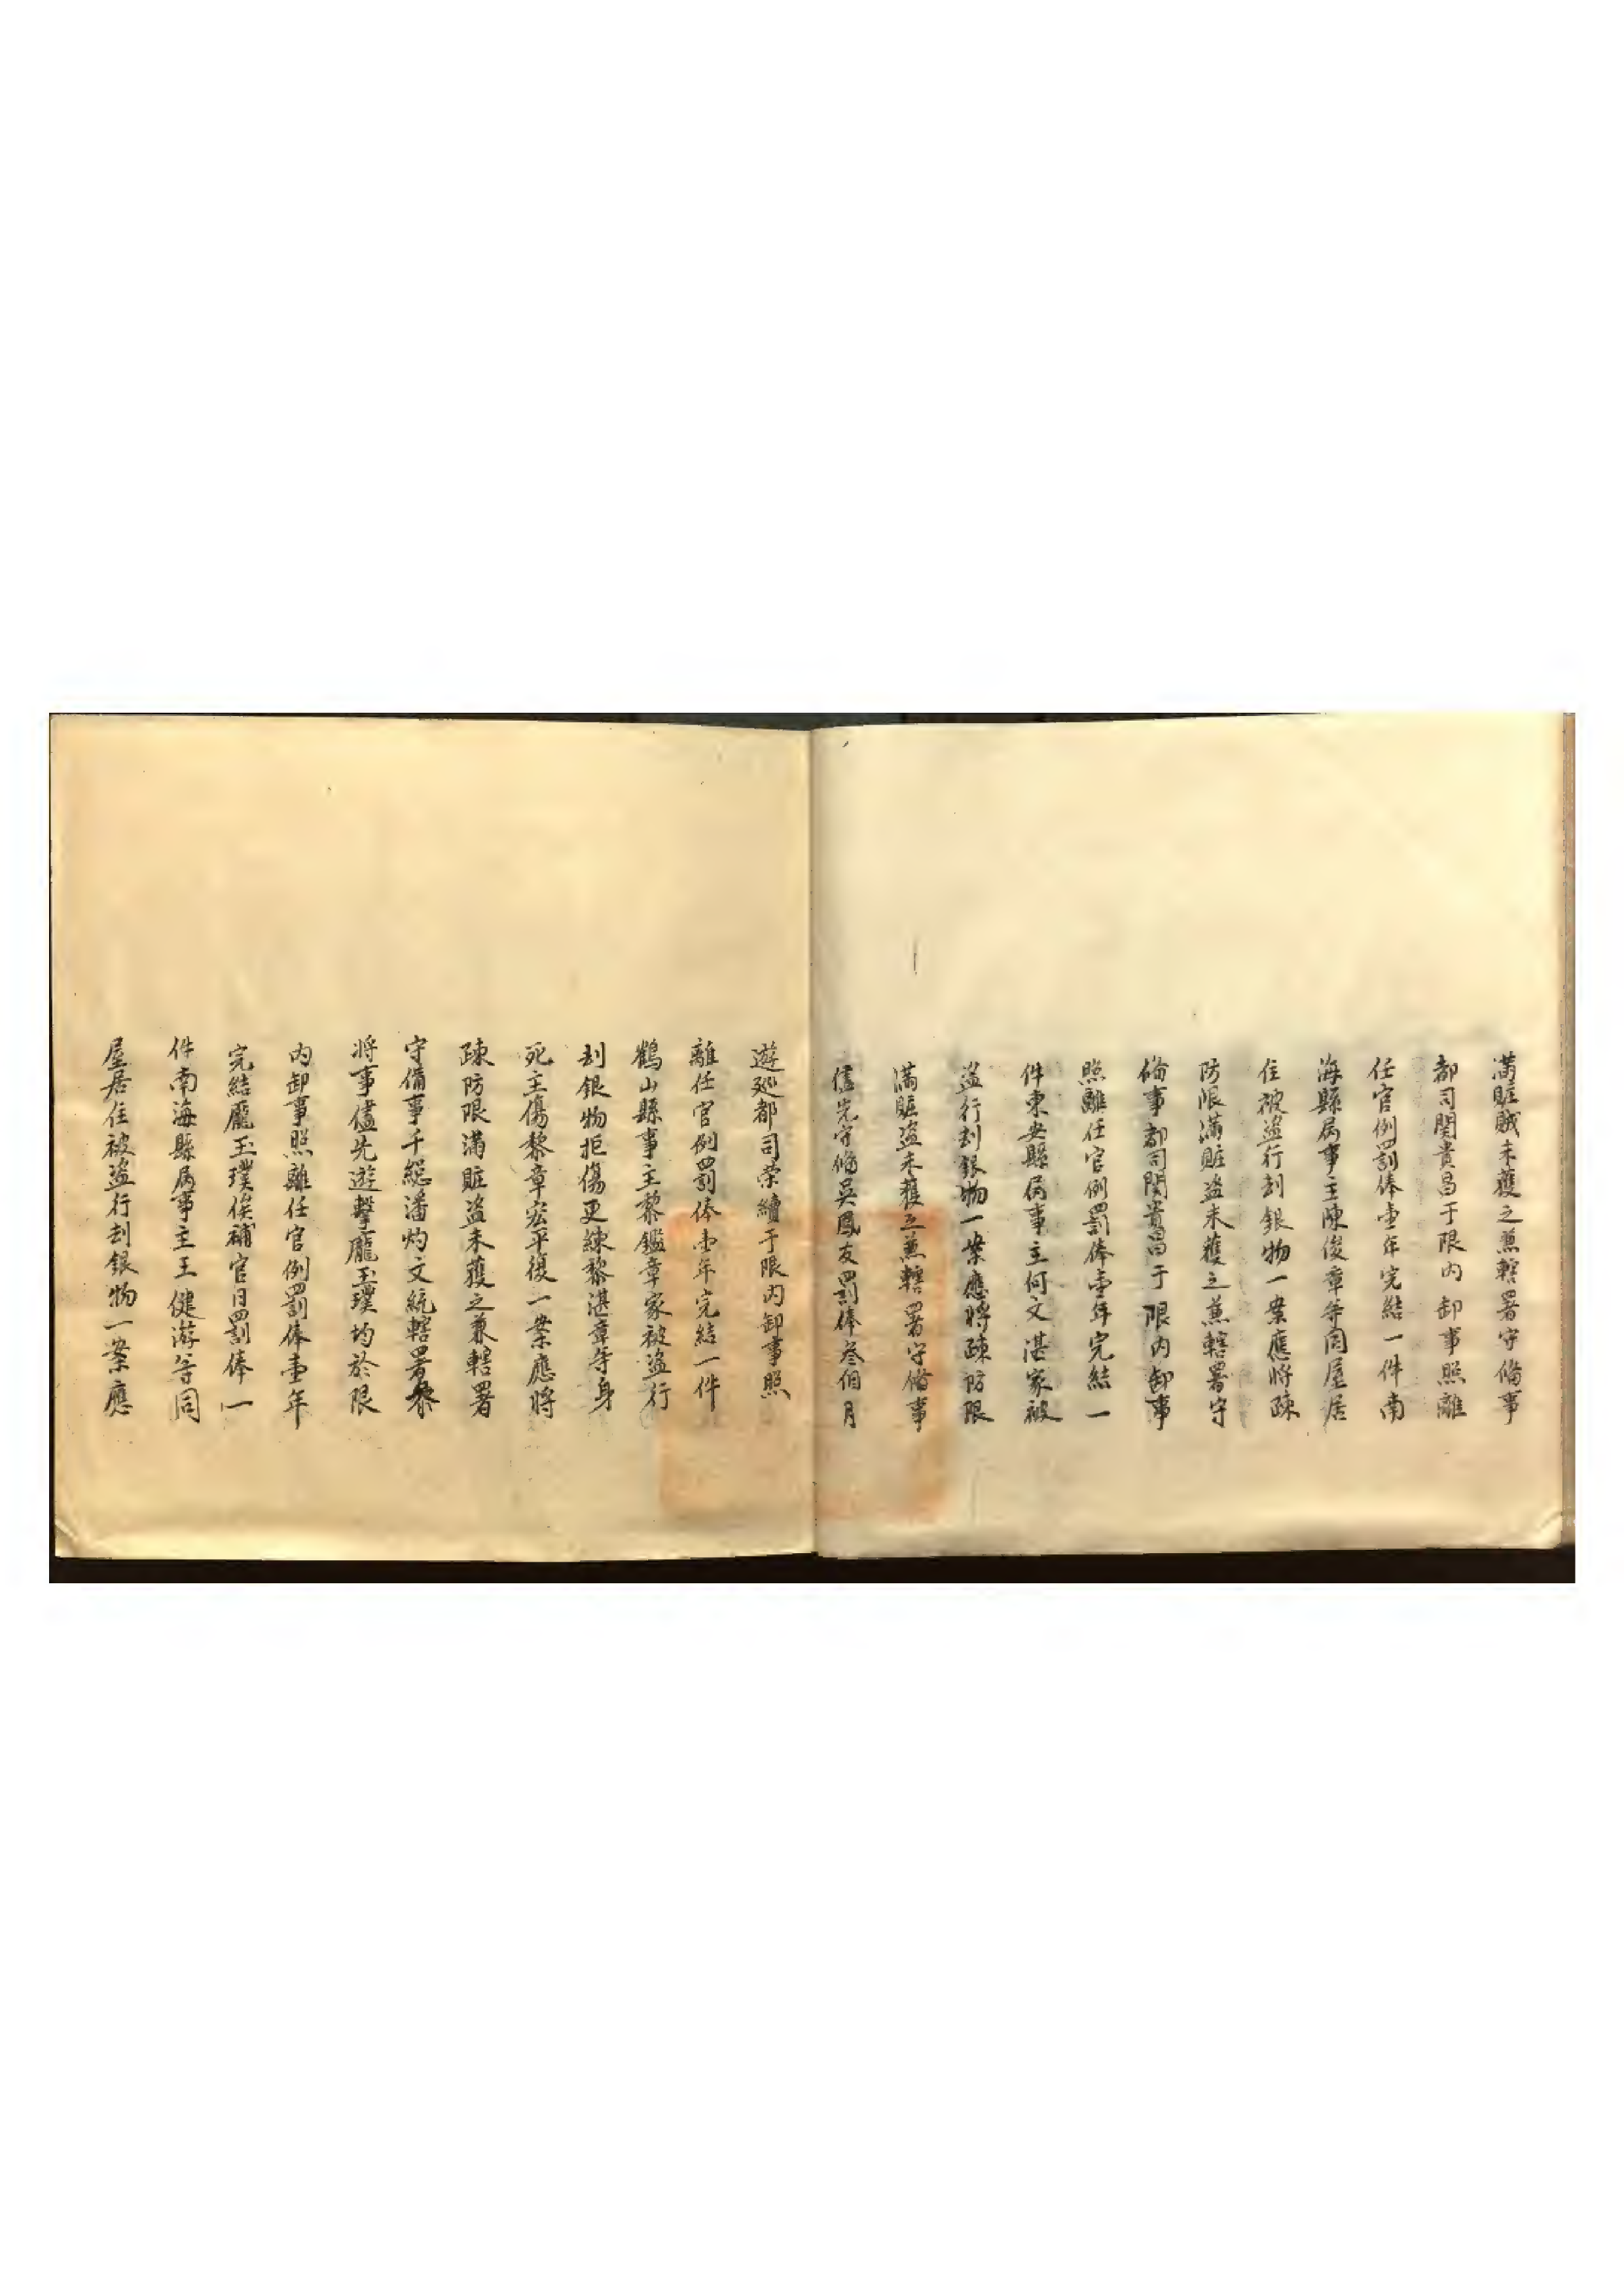 滿賍賊未獲之兼轄署守俻事
都司閔貴昌于限內卸事照離
任官例罰俸壹年完結一件南
海縣屬事主陳俊章等同屋居
住被盗行刦銀物一案應將疎
防限滿賍盗未獲之兼轄署守
俻事都司閔貴昌于限內卸事
照離任官例罰俸壹年完結一
件東安縣屬事主何文湛家被
盗行刦銀物一案應將疎防限
滿賍盗未獲之兼轄署守俻事
儘先守俻吳鳳友罰俸叁個月
遊廵都司荣續于限內卸事照
離任官例罰俸壹年完結一件
鶴山縣事主黎鑑章家被盗行
刦銀物拒傷更練黎湛章等身
死主傷黎章宏平復一案應將
疎防限滿賍盗未獲之兼轄署
守備事千緫潘灼文統轄署叅
將事儘先遊擊龐玉璞均於限
內卸事照離任官例罰俸壹年
完結龐玉璞俟補官日罰俸一
件南海縣屬事主王健游等同
屋居住被盗行刦銀物一案應